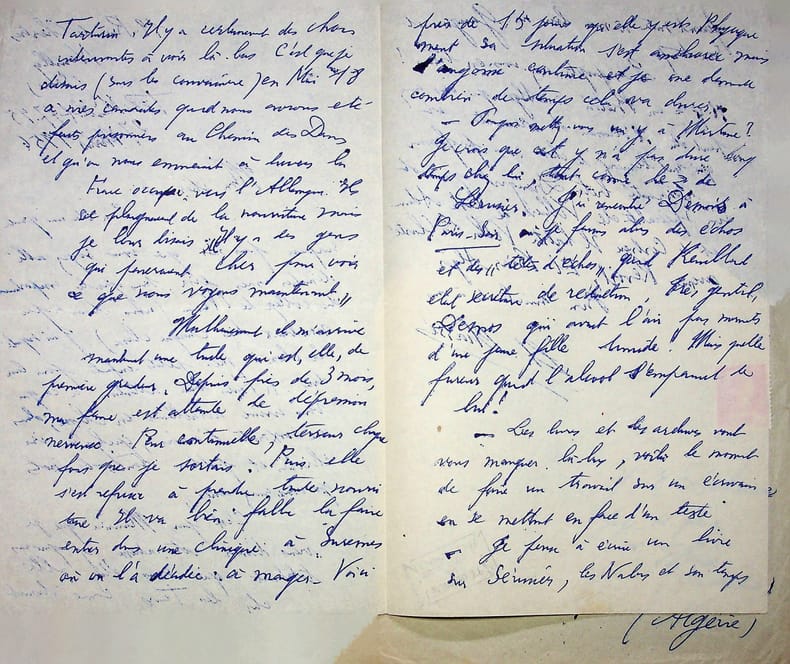 Tartarin. Il y a certainement des choses
intéressantes à voir là-bas. C'est que je
disais (sur les                ) en Mai
à mes camarades quand nous avions été
faits prisonniers au Chemin des Dames
et qu'on nous emmenait à travers la
France occupée vers l'Allemagne. Ils
se plaignaient de la nourriture mais
je leur disais "Il y a des gens
qui            cher pour voir
ce que nous voyons maintenant"
Malheureusement il m'arrive
maintenant une tuile qui est, elle, de
première grandeur. Depuis près de 3 mois,
ma femme est atteinte de dépression
nerveuse. Peur continuelle, terreur chaque
fois que je sortais. Puis elle
s'est refusée à prendre toute nourri
ture. Il va bien fallu la faire
entrer dans une clinique à Suresnes
où on l'a décidée à manger. Voici
près de 15 jours qu'elle y est. Physique
ment sa situation s'est améliorée mais
l'angoisse continue et je me demande
combien de temps cela va durer.
— Pourquoi mettez-vous un y à Martine ?
Je crois que cet y n'a pas duré long
temps chez lui, tout comme le   de
                J'ai rencontré Desnos à
Paris-Soir où je faisais alors des échos
et des "têtes d'échos" quand
était secrétaire de rédaction, très gentil,
Desnos qui avait l'air pas moins
d'une jeune fille timide. Mais quelle
fureur quand l'alcool s'emparait de
lui !
— Les livres et les archives vont
vous manquer là-bas, voilà le moment
de faire un travail sur un écrivain
en se mettant en face d'un texte
— Je pense à écrire un livre
sur            , les Nabis et son temps
(Algérie)